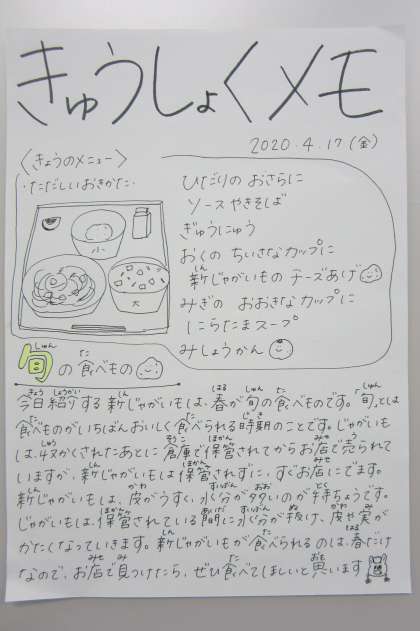 きゅうしょくメモ
2020.4.17(金)
〈きょうのメニュー〉
・ただしいおきかた・
小
大
ひだりの おさらに
ソースやきそば
ぎゅうにゅう
おくの ちいさなカップに
新じゃがいもの チーズあげ
みぎの おおきなカップに
にらたまスープ
みしょうかん
旬の食べもの
今日紹介する新じゃがいもは、春が旬の食べものです。「旬」とは
食べものがいちばんおいしく食べられる時期のことです。じゃがいも
は、収かくされたあとに倉庫で保管されてからお店で売られて
いますが、新じゃがいもは保管されずに、すぐお店にでます。
新じゃがいもは、皮がうすく、水分が多いのが特ちょうです。
じゃがいもは、保管されている間に水分が抜け、皮や実が
かたくなっていきます。新じゃがいもが食べられるのは、春だけ
なので、お店で見つけたら、ぜひ食べてほしいと思います